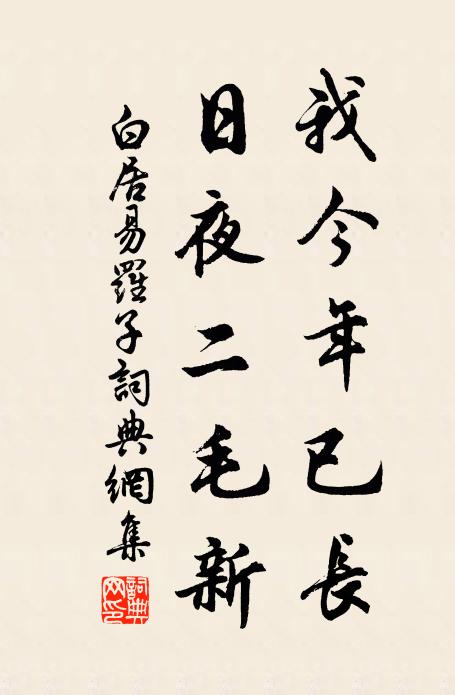 我今年已長
日夜二毛新
白居易羅子詞典網集
詞典網印